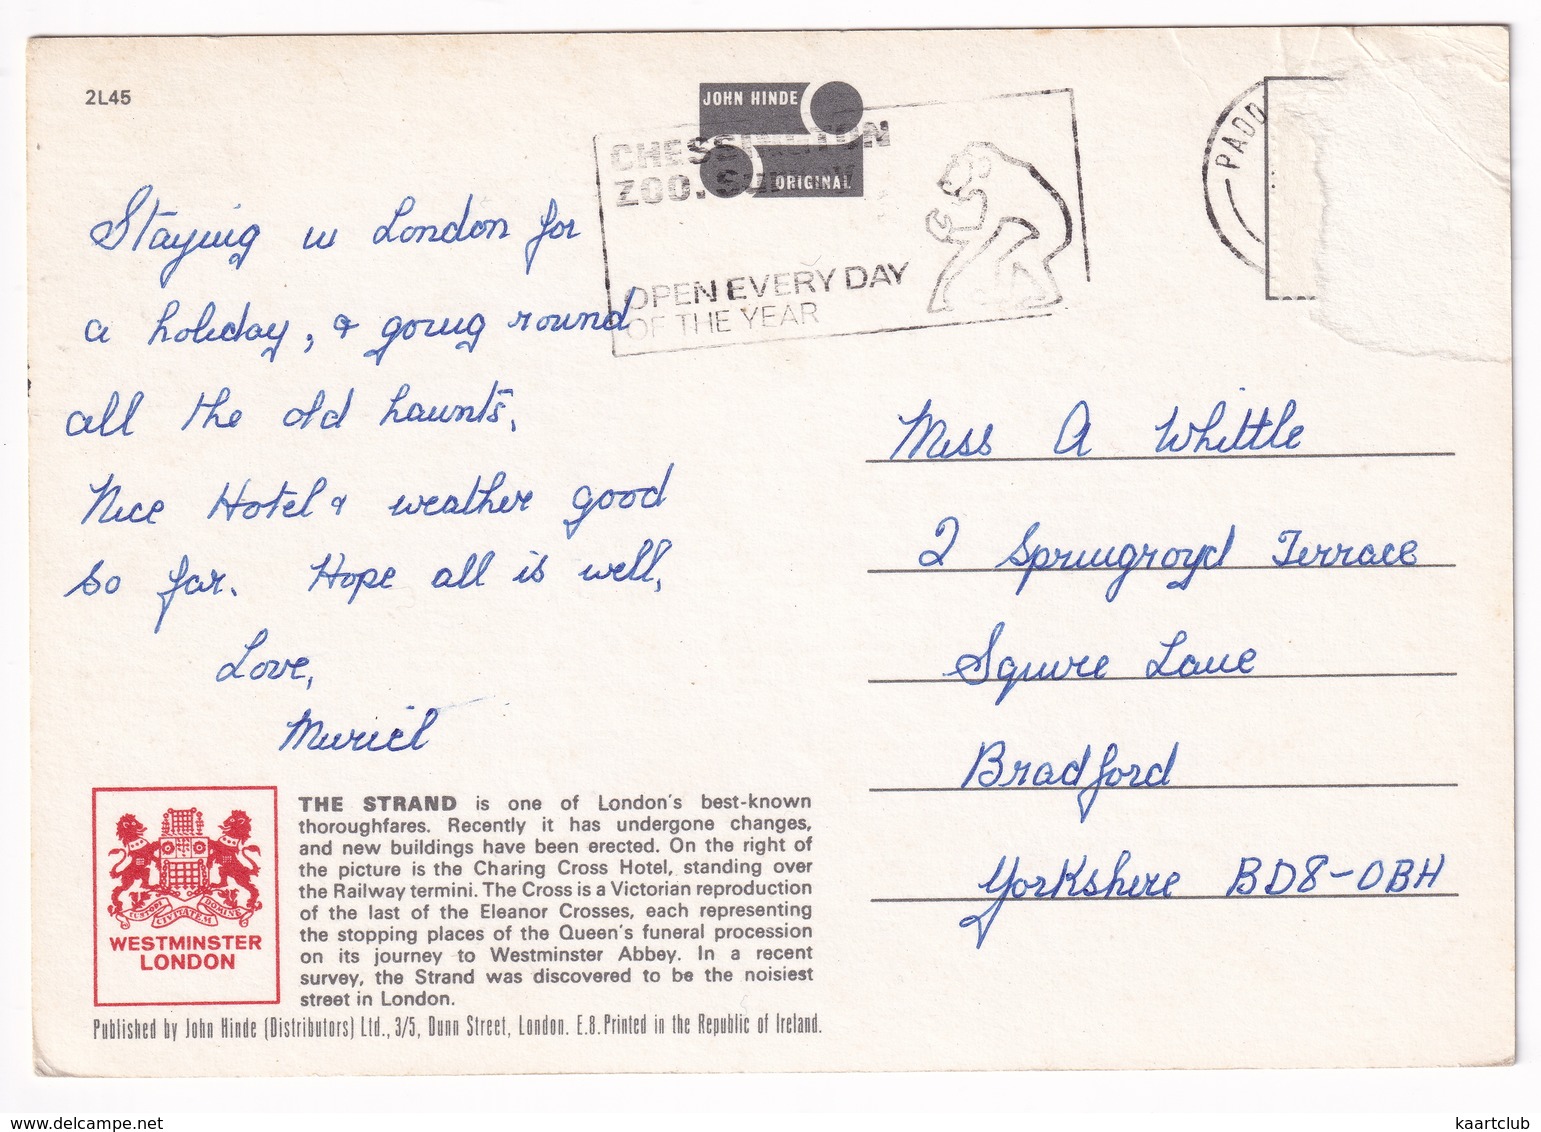 2L45
JOHN HINDE
ORIGINAL
CHESSINGTON
ZOO. SURREY
OPEN EVERY DAY
OF THE YEAR
PADD
Staying in London for
a holiday, & going round
all the old haunts.
Nice Hotel & weather good
so far. Hope all is well,
Love,
Muriel
Miss A Whittle
2 Springroyd Terrace
Squire Lane
Bradford
Yorkshire BD8-0BH
CUSTODI CIVITATEM DOMINE
WESTMINSTER
LONDON
THE STRAND is one of London's best-known
thoroughfares. Recently it has undergone changes,
and new buildings have been erected. On the right of
the picture is the Charing Cross Hotel, standing over
the Railway termini. The Cross is a Victorian reproduction
of the last of the Eleanor Crosses, each representing
the stopping places of the Queen's funeral procession
on its journey to Westminster Abbey. In a recent
survey, the Strand was discovered to be the noisiest
street in London.
Published by John Hinde (Distributors) Ltd., 3/5, Dunn Street, London. E.8. Printed in the Republic of Ireland.
www.delcampe.net
kaartclub